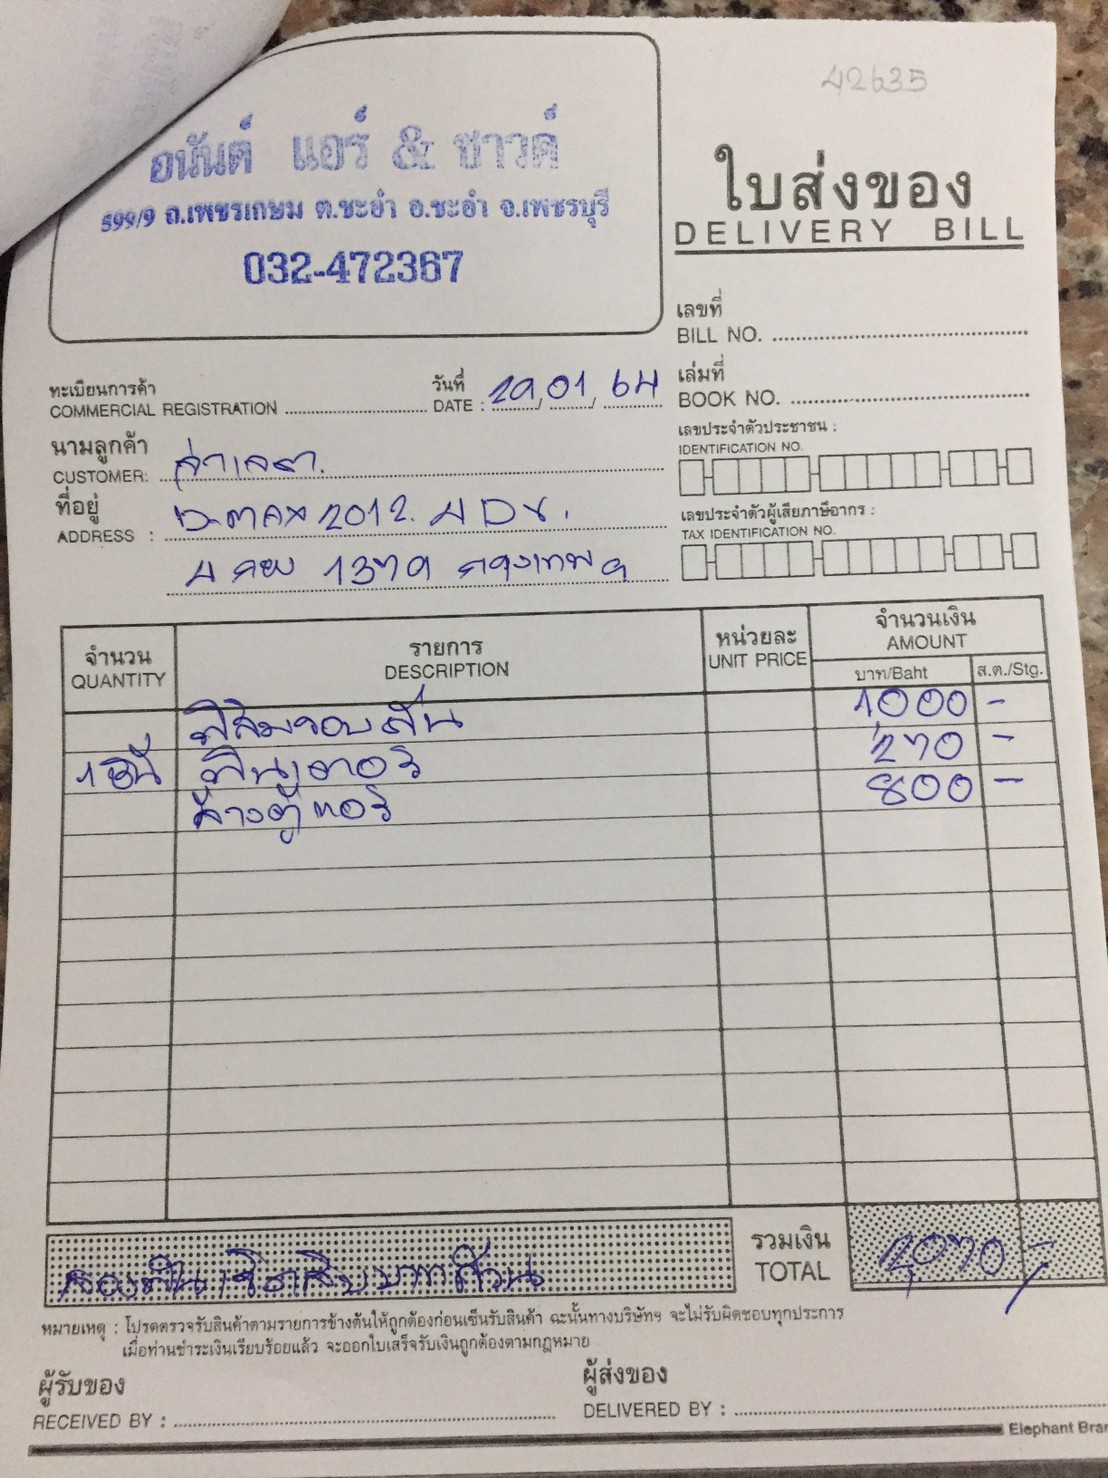 42635
อนันต์ แอร์ & ซาวด์
599/9 ถ.เพชรเกษม ต.ชะอำ อ.ชะอำ จ.เพชรบุรี
032-472367
ใบส่งของ
DELIVERY BILL
เลขที่
BILL NO.
ทะเบียนการค้า
COMMERCIAL REGISTRATION
วันที่
DATE : 29, 01, 64
เล่มที่
BOOK NO.
นามลูกค้า
CUSTOMER:
เลขประจำตัวประชาชน :
IDENTIFICATION NO.
ที่อยู่
ADDRESS : 2012.
เลขประจำตัวผู้เสียภาษีอากร :
TAX IDENTIFICATION NO.
1379 กรุงเทพฯ
จำนวน
QUANTITY
รายการ
DESCRIPTION
หน่วยละ
UNIT PRICE
จำนวนเงิน
AMOUNT
บาท/Baht
ส.ต./Stg.
ฟิล์มรอบคัน 1000 -
270 -
ล้างตู้แอร์ 800 -
รวมเงิน
TOTAL
2,070 -
สองพันเจ็ดสิบบาทถ้วน
หมายเหตุ : โปรดตรวจรับสินค้าตามรายการข้างต้นให้ถูกต้องก่อนเซ็นรับสินค้า ฉะนั้นทางบริษัทฯ จะไม่รับผิดชอบทุกประการ
เมื่อท่านชำระเงินเรียบร้อยแล้ว จะออกใบเสร็จรับเงินถูกต้องตามกฎหมาย
ผู้รับของ
RECEIVED BY :
ผู้ส่งของ
DELIVERED BY :
Elephant